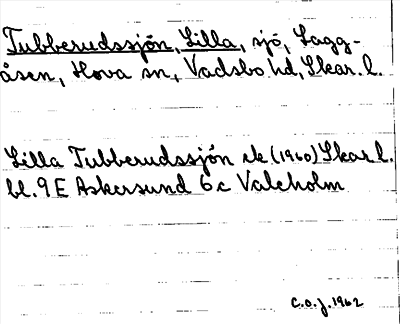 Tubberudssjön, Lilla, sjö, Lagg-
åsen, Hova sn, Vadsbo hd, Skar. l.
Lilla Tubberudssjön ek (1960) Skar l.
bl. 9 E Askersund 6 c Valeholm
C.O.J. 1962